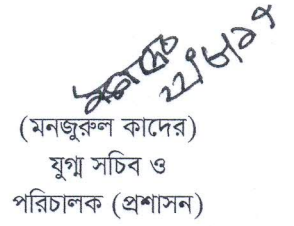 (মনজুরুল কাদের)
যুগ্ম সচিব ও
পরিচালক (প্রশাসন)